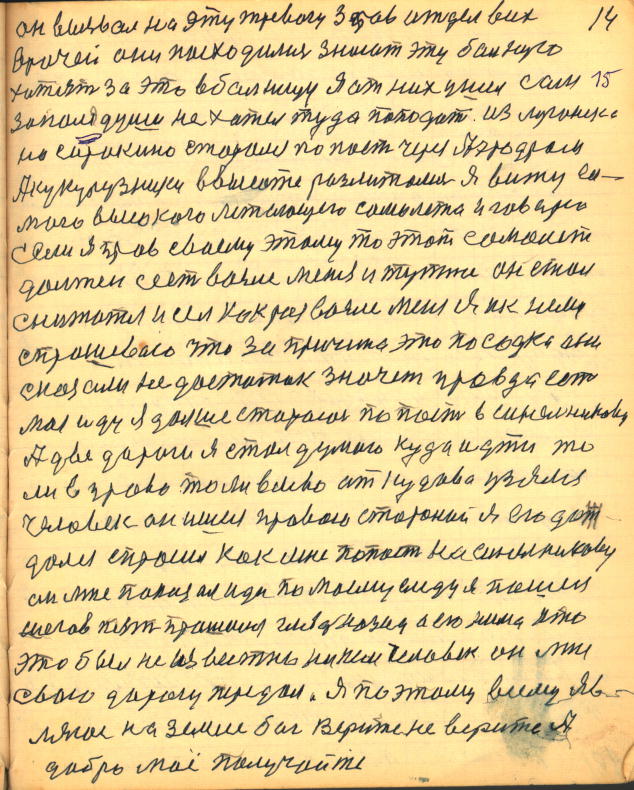 он вызвал на эту тревогу здрав отдел вих 14
врачей они посходился значит эту больнуго
хотят за это в болницу Я от них ушел сам 15
заполд души не хотел туда попадат. из луганска
на сорокино старался попост через Аэродром
А кукурузники в высоте разлитолися Я вижу са-
мого высокого летающего самолета и говарю
если Я прав своему этому то этот самолет
должен сест возле меня и тут же он стал
снижатся и сел как раз возле меня Я к нему
спрашеваю что за причина это посадка они
сказали не достаток значет правда ест
моя иду Я далше стараюс попост в синелниково
А две дороги я стал думаю куда идти то
ли в право толи влево откудова взялся
человек он ишел правою стороной я его дог
дал спрошл как мне попост на синелниково
он мне показал иди по моему следу я пошел
шегов пят прошол гляд назад а ево нима что
это был не известный никем человек он мне
свою дорогу передал. Я поэтому всему яв-
ляюс на земле бог Верите не верите А
добро моё получайте